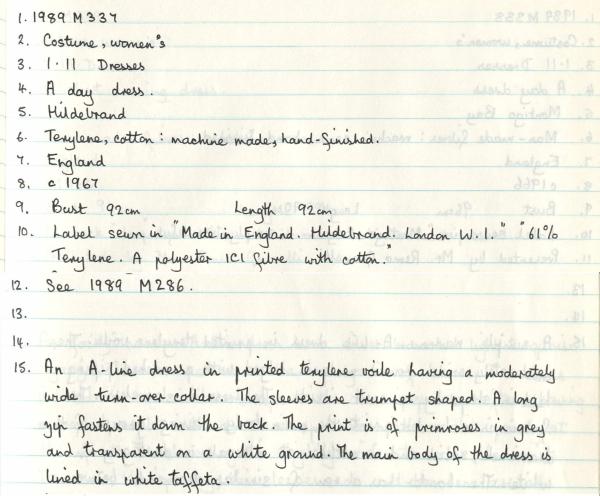 1. 1989 M337
2. Costume, women's
3. 1.11 Dresses
4. A day dress.
5. Hildebrand
6. Terylene, cotton : machine made, hand-finished.
7. England
8. c 1967
9. Bust 92cm Length 92cm
10. Label sewn in "Made in England. Hildebrand. London W.1." "61%
Terylene. A polyester ICI fibre with cotton."
12. See 1989 M286.
13.
14.
15. An A-line dress in printed terylene voile having a moderately
wide turn-over collar. The sleeves are trumpet shaped. A long
zip fastens it down the back. The print is of primroses in grey
and transparent on a white ground. The main body of the dress is
lined in white taffeta.